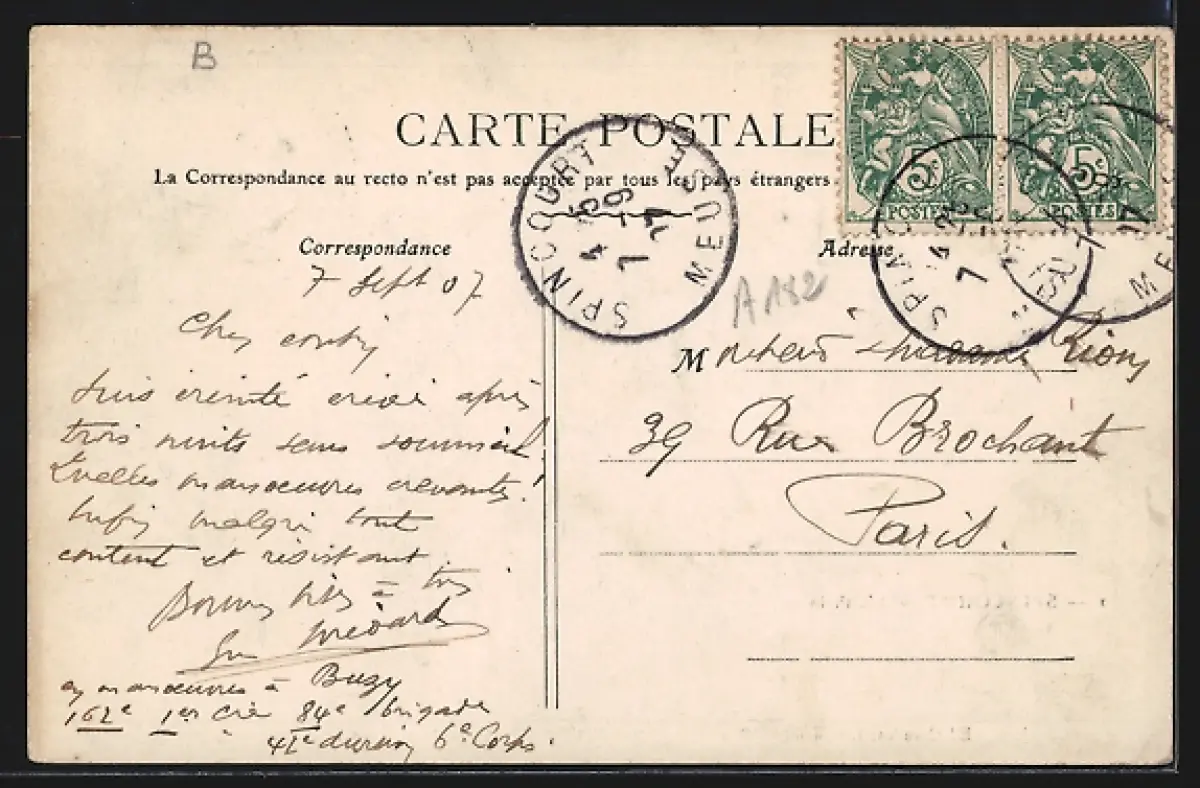 B
CARTE POSTALE
La Correspondance au recto n'est pas acceptée par tous les pays étrangers
Correspondance
Adresse
SPINCOURT MEUSE
5c
POSTES
5c
POSTES
A 182
7 Sept 07
Cher cousin
Suis éreinté crevé après
trois nuits sans sommeil!
Quelles manoeuvres crevantes!
Enfin malgré tout
content et résistant
Bonnes à tous
Médard
en manoeuvres à Buzy
162e 1er Cie 84e brigade
42e division 6e Corps.
Monsieur & madame
39 Rue Brochant
Paris.